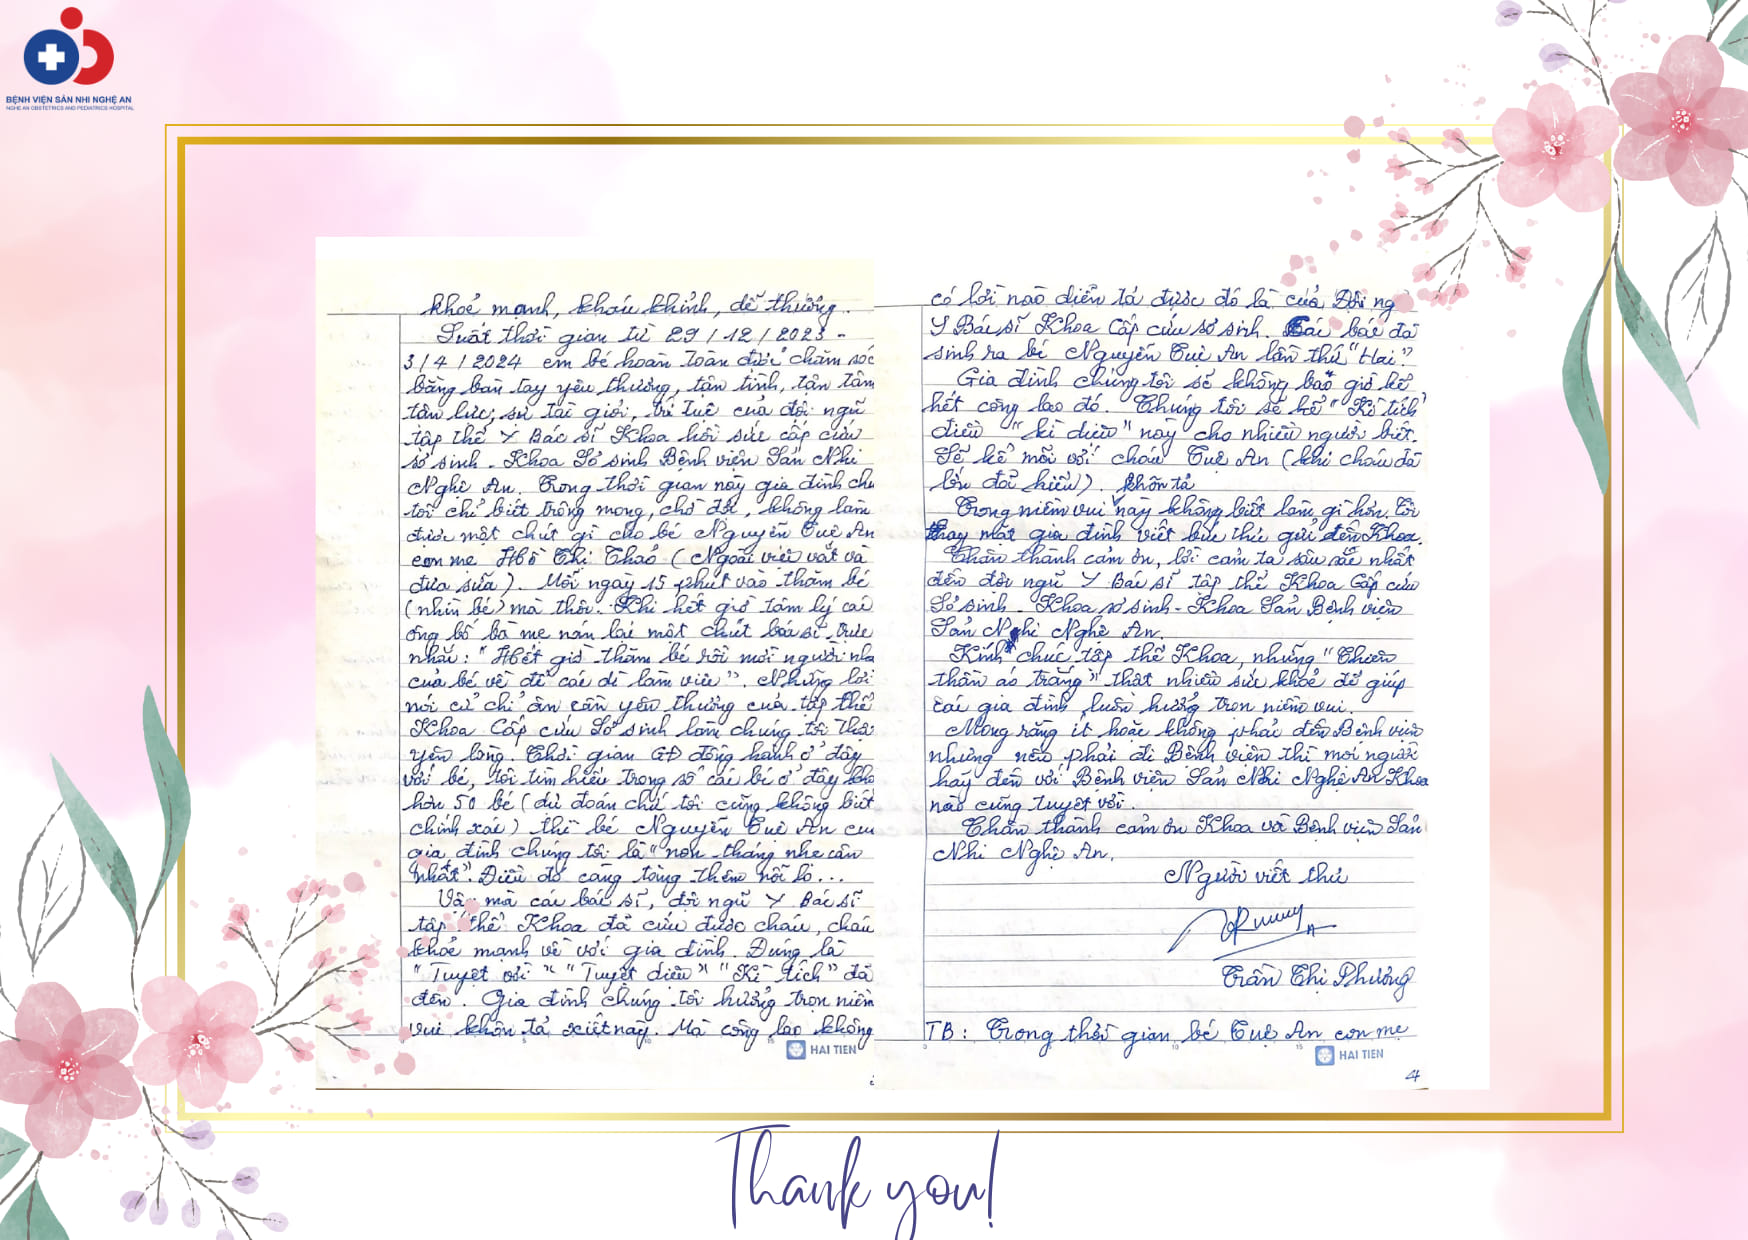 BỆNH VIỆN SẢN NHI NGHỆ AN
NGHE AN OBSTETRICS AND PEDIATRICS HOSPITAL
khoẻ mạnh, kháu khỉnh, dễ thương.
Suất thời gian từ 29/12/2023 -
3/4/2024 em bé hoàn toàn được chăm sóc
bằng bàn tay yêu thương, tận tình, tận tâm
tâm lực, sự tài giỏi, trí tuệ của đội ngũ
tập thể Y Bác sĩ Khoa hồi sức cấp cứu
sơ sinh - Khoa Sơ sinh Bệnh viện Sản Nhi
Nghệ An. Trong thời gian này gia đình chú
tôi chỉ biết trông mong, chờ đợi, không làm
được một chút gì cho bé Nguyễn Tuệ An
con mẹ Hồ Thị Thảo (Ngoài việc vắt và
đưa sữa). Mỗi ngày 15 phút vào thăm bé
(nhìn bé) mà thôi. Khi hết giờ tâm lý các
ông bố bà mẹ nán lại một chút bác sĩ trực
nhắc: "Hết giờ thăm bé rồi mời người nhà
của bé về để các dì làm việc". Những lời
nói cử chỉ ân cần yêu thương của tập thể
Khoa Cấp cứu Sơ sinh làm chúng tôi thật
yên lòng. Thời gian GĐ đồng hành ở đây
với bé, tôi tìm hiểu trong số các bé ở đây kho
hơn 50 bé (dự đoán chứ tôi cũng không biết
chính xác) thì bé Nguyễn Tuệ An của
gia đình chúng tôi là "non tháng nhẹ cân
nhất". Điều đó càng tăng thêm nỗi lo...
Vậy mà các bác sĩ, đội ngũ Y Bác sĩ
tập thể Khoa đã cứu được cháu, cháu
khoẻ mạnh về với gia đình. Đúng là
"Tuyệt vời" "Tuyệt diệu" "Kì tích" đã
đến. Gia đình chúng tôi hưởng trọn niềm
vui khôn tả xiết này. Mà công lao không
HAI TIEN
có lời nào diễn tả được đó là của Đội ng
Y Bác sĩ Khoa Cấp cứu sơ sinh. Các bác đã
sinh ra bé Nguyễn Tuệ An lần thứ "Hai"
Gia đình chúng tôi sẽ không bao giờ kể
hết công lao đó. Chúng tôi sẽ kể "Kì tích"
điều "kì diệu" này cho nhiều người biết.
Sẽ kể mãi với cháu Tuệ An (khi cháu đã
lớn đã hiểu). khôn tả
Trong niềm vui này không biết làm gì hơn. Tôi
thay mặt gia đình viết bức thư gửi đến Khoa.
Chân thành cảm ơn, lời cảm tạ sâu sắc nhất
đến đội ngũ Y Bác sĩ tập thể Khoa Cấp cứu
Sơ sinh - Khoa sơ sinh - Khoa Sản Bệnh viện
Sản Nhi Nghệ An.
Kính chúc tập thể Khoa, những "Thiên
thần áo trắng" thật nhiều sức khoẻ để giúp
các gia đình luôn hưởng trọn niềm vui.
Mong rằng ít hoặc không phải đến Bệnh viện
nhưng nếu phải đi Bệnh viện thì mọi người
hãy đến với Bệnh viện Sản Nhi Nghệ An Khoa
nào cũng tuyệt vời.
Chân thành cảm ơn Khoa và Bệnh viện Sản
Nhi Nghệ An.
Người viết thư
Trần Thị Phương
TB: Trong thời gian bé Tuệ An con mẹ
HAI TIEN
4
Thank you!